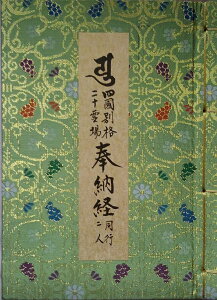 𑖀𑖾
四國別格
二十霊場
奉納経
同行
二人